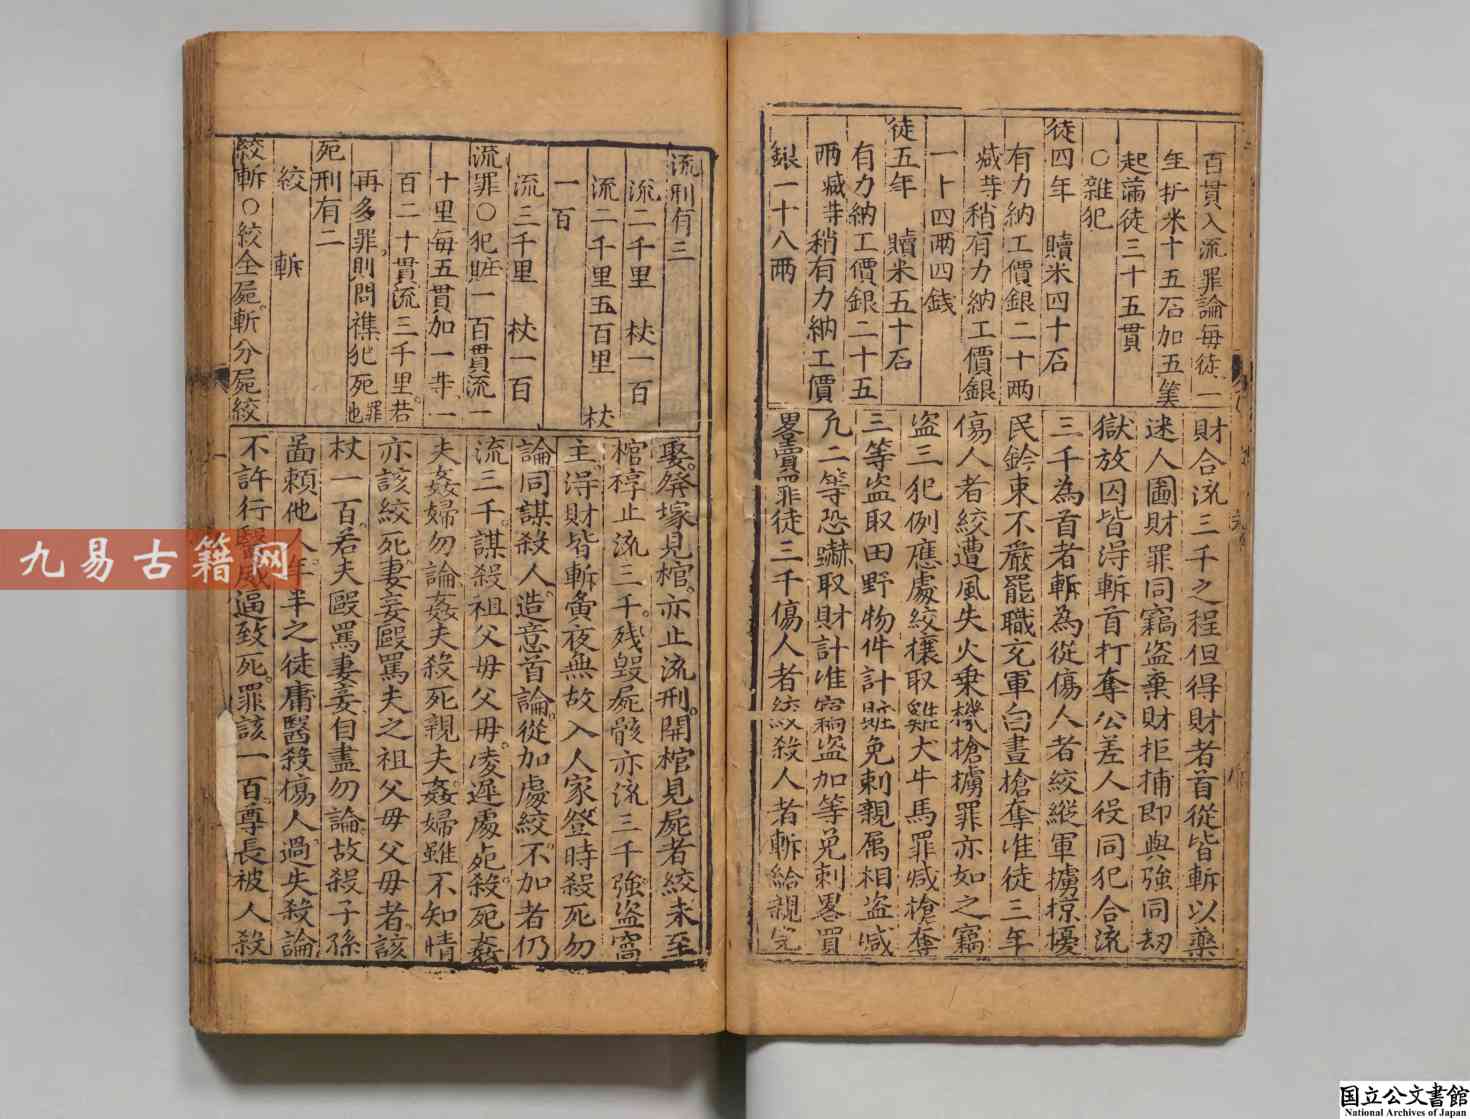 百貫入流罪論每徒一
年折米十五石加五等
起滿徒三十五貫
○雜犯
徒四年　贖米四十石
有力納工價銀二十兩
减等稍有力納工價銀
一十四兩四錢
徒五年　贖米五十石
有力納工價銀二十五
兩减等稍有力納工價
銀一十八兩
財合流三千之程但得財者首從皆斬以藥
迷人圖財罪同竊盜棄財拒捕即與強同刼
獄放囚皆淂斬首打奪公差人役同犯合流
三千為首者斬為從傷人者絞縱軍擄掠擾
民鈐束不嚴罷職充軍白晝搶奪准徒三年
傷人者絞遭風失火乗機搶擄罪亦如之竊
盜三犯例應處絞攘取雞犬牛馬罪减搶奪
三等盜取田野物件計賍免刺親属相盜减
九二等恐嚇取財計准竊盜加等免刺畧買
畧賣罪徒三千傷人者絞殺人者斬給親完
流刑有三
流二千里　杖一百
流二千里五百里　杖
一百
流三千里　杖一百
流罪○犯賍一百貫流一
十里每五貫加一等一
百二十貫流三千里若
再多罪則問襍犯死罪也
死刑有二
絞　斬
絞斬○絞全屍斬分屍絞
娶發塚見棺亦止流刑開棺見屍者絞未至
棺椁止流三千殘毀屍骸亦流三千強盜窩
主淂財皆斬夤夜無故入人家登時殺死勿
論同謀殺人造意首論從加處絞不加者仍
流三千謀殺祖父母父母凌遲處死殺死姦
夫姦婦勿論姦夫殺死親夫姦婦雖不知情
亦該絞死妻妾毆罵夫之祖父母父母者該
杖一百若夫毆罵妻妾自盡勿論故殺子孫
啚頼他人年半之徒庸醫殺傷人過失殺論
不許行醫威逼致死罪該一百尊長被人殺
九易古籍网
国立公文書館
National Archives of Japan